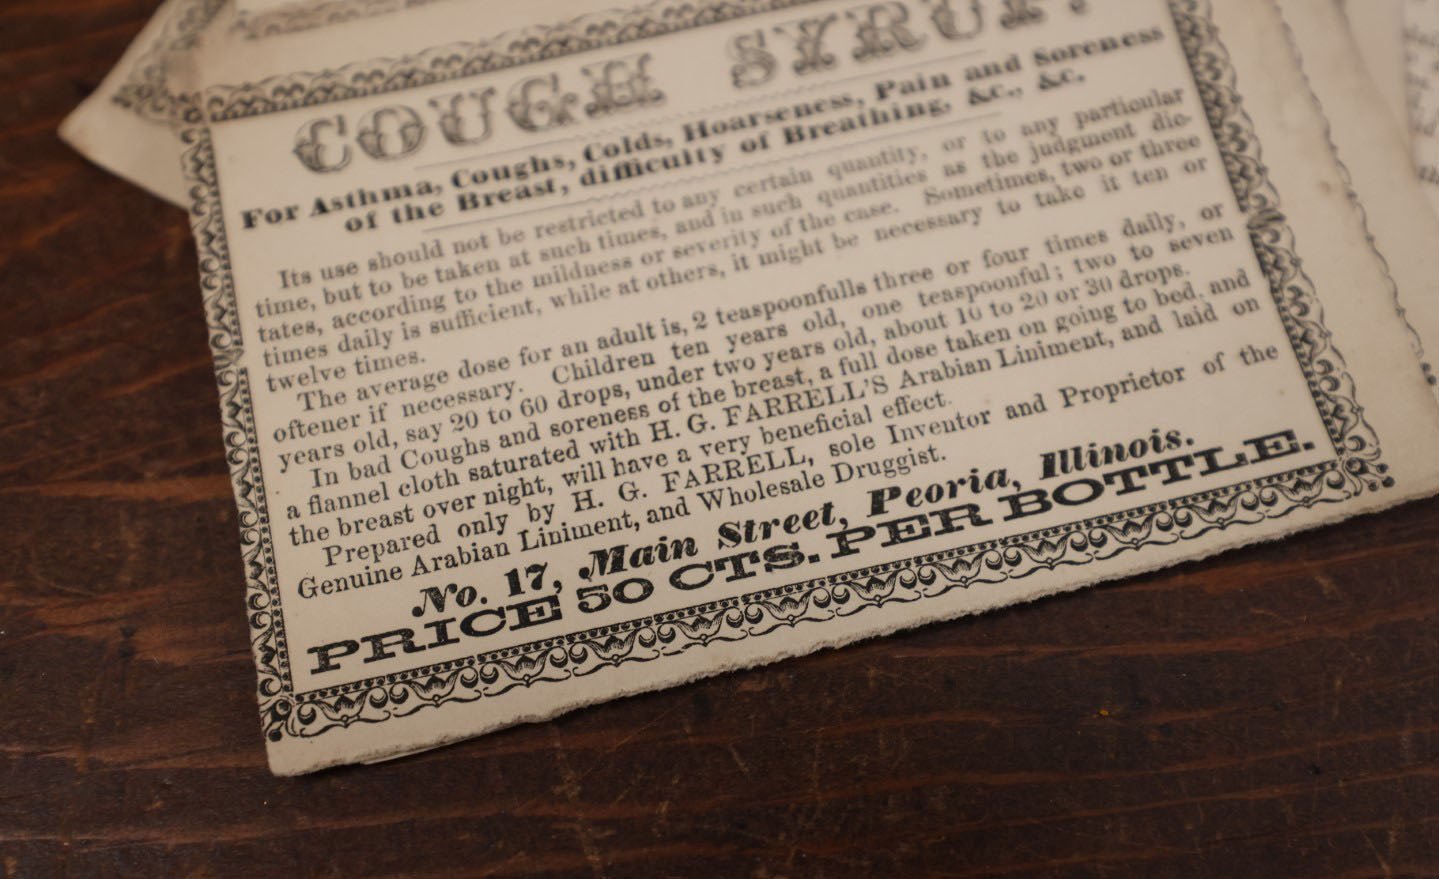 COUGH SYRUP.
For Asthma, Coughs, Colds, Hoarseness, Pain and Soreness
of the Breast, difficulty of Breathing, &c., &c.
Its use should not be restricted to any certain quantity, or to any particular
time, but to be taken at such times, and in such quantities as the judgment dic-
tates, according to the mildness or severity of the case. Sometimes, two or three
times daily is sufficient, while at others, it might be necessary to take it ten or
twelve times.
The average dose for an adult is, 2 teaspoonfulls three or four times daily, or
oftener if necessary. Children ten years old, one teaspoonful; two to seven
years old, say 20 to 60 drops, under two years old, about 10 to 20 or 30 drops.
In bad Coughs and soreness of the breast, a full dose taken on going to bed, and
a flannel cloth saturated with H. G. FARRELL'S Arabian Liniment, and laid on
the breast over night, will have a very beneficial effect.
Prepared only by H. G. FARRELL, sole Inventor and Proprietor of the
Genuine Arabian Liniment, and Wholesale Druggist.
No. 17, Main Street, Peoria, Illinois.
PRICE 50 CTS. PER BOTTLE.